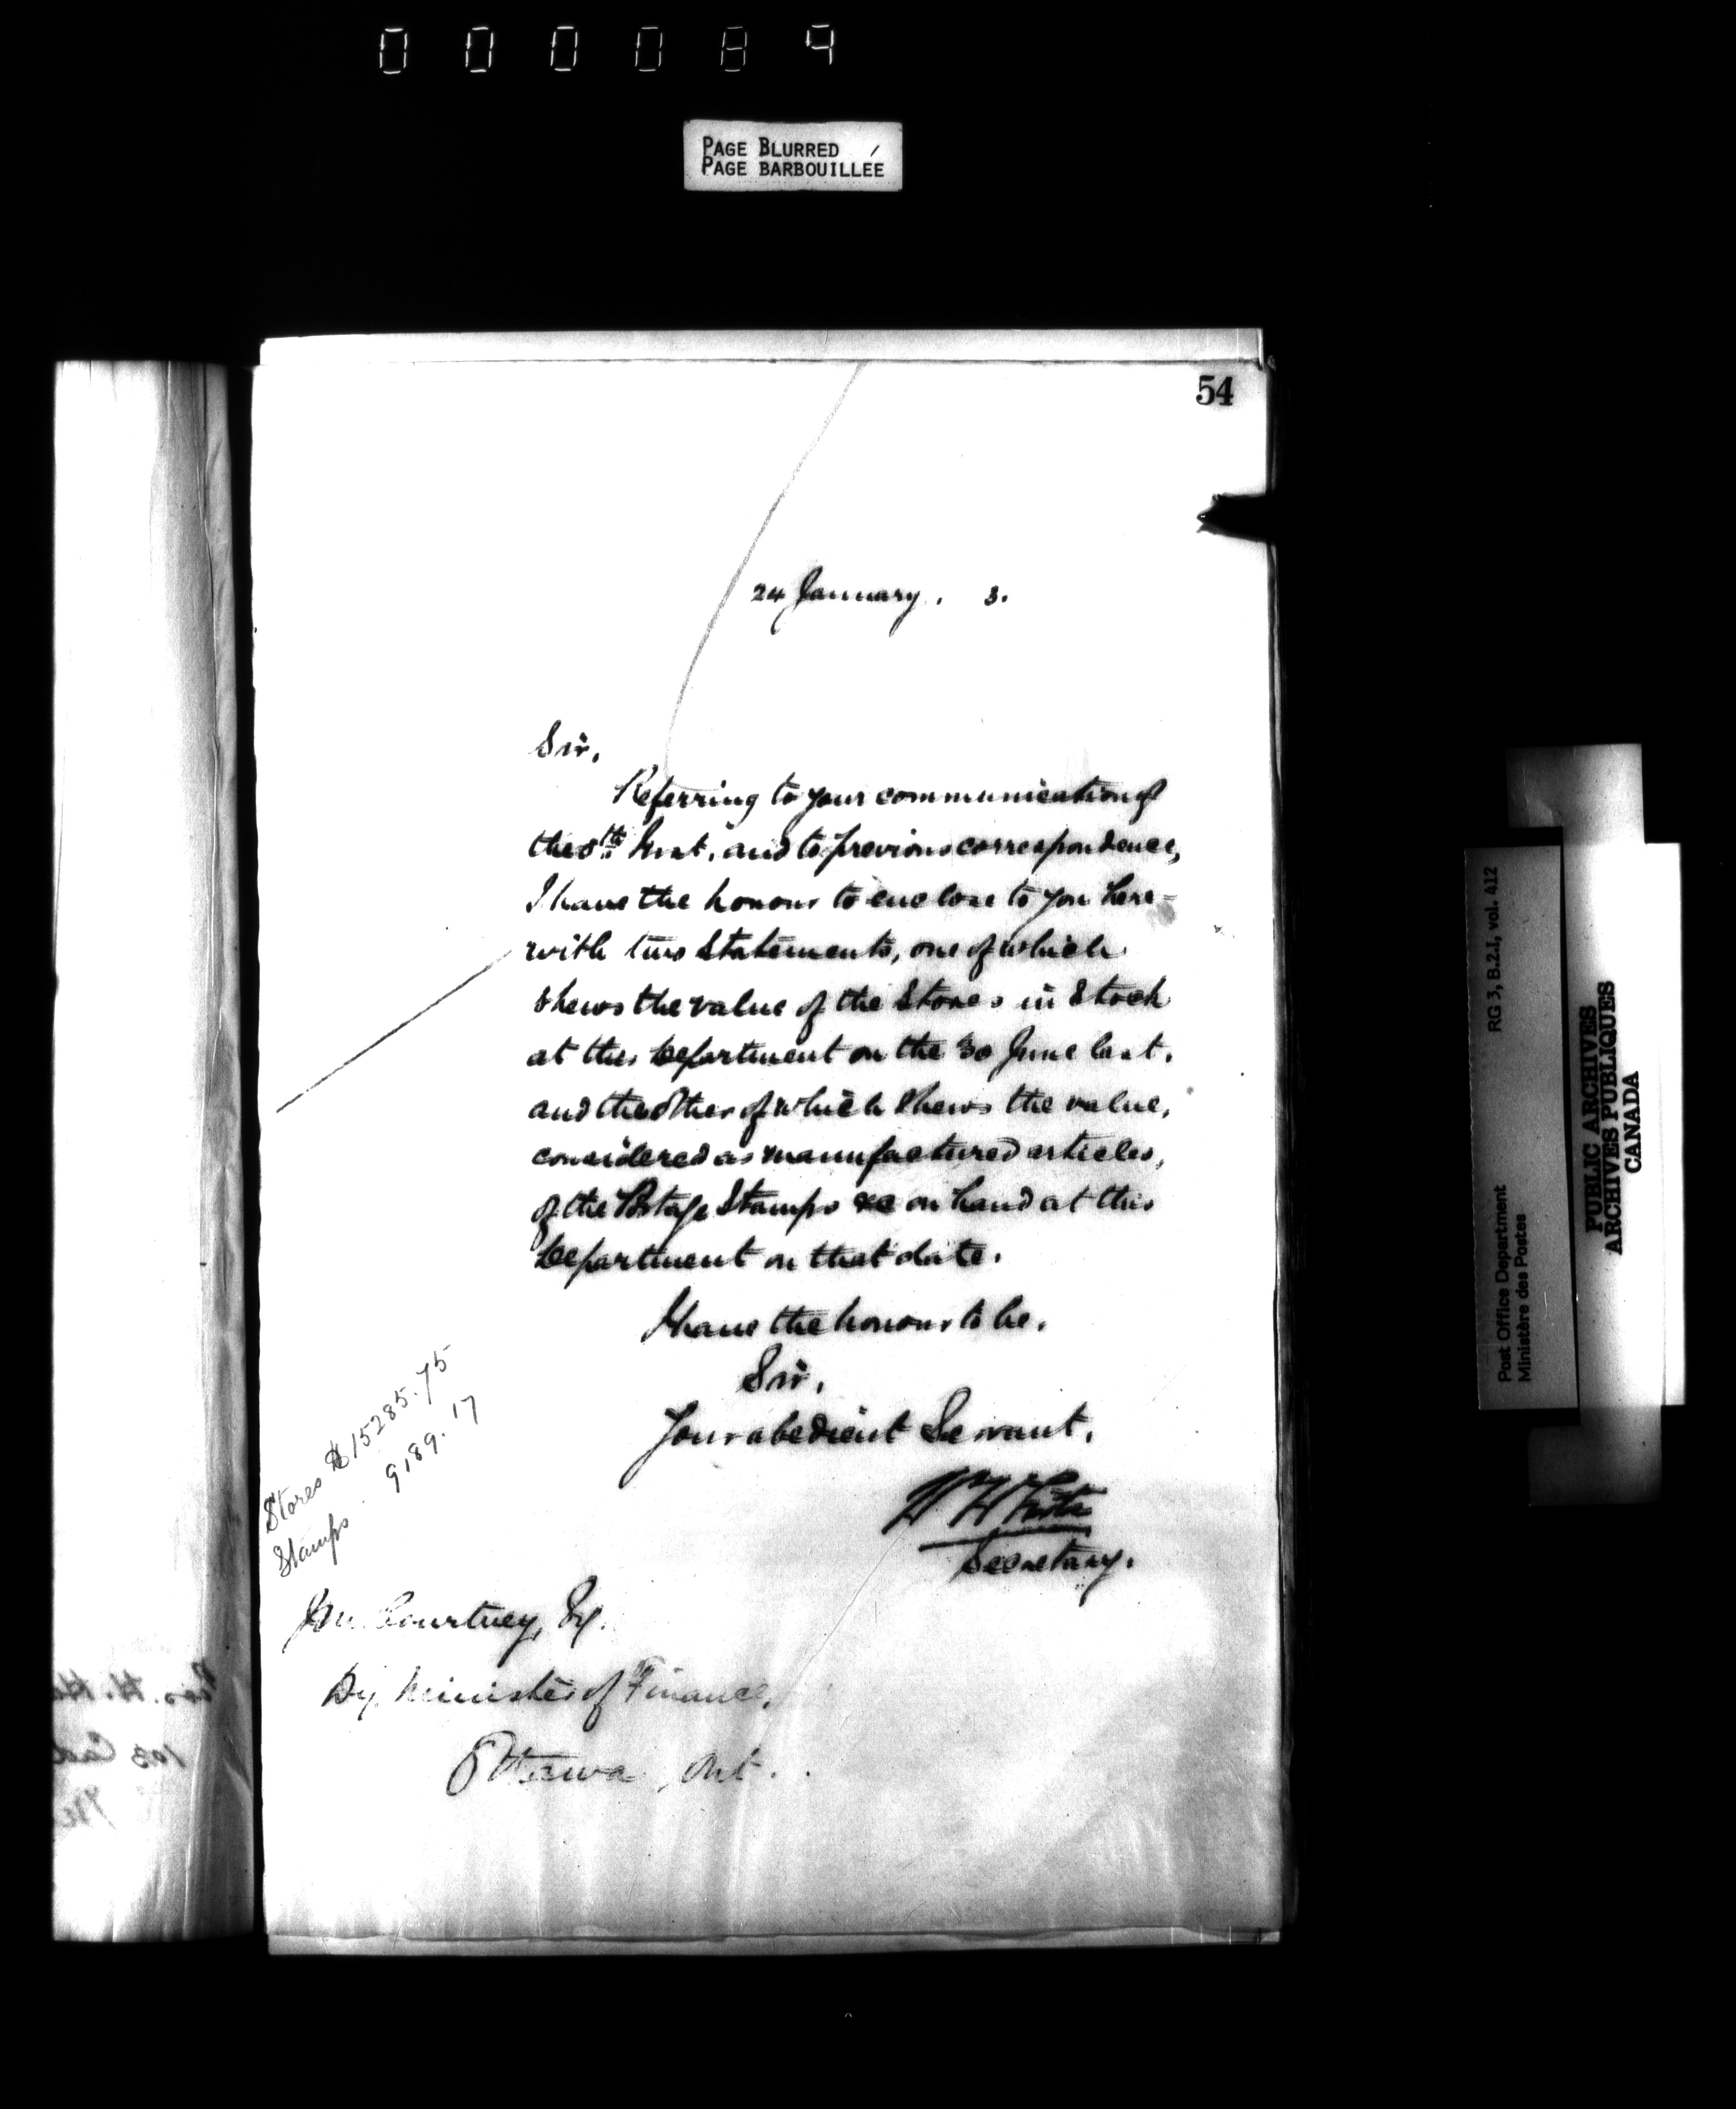 000084
PAGE BLURRED
PAGE BARBOUILLÉE
54
24 January. 3.
Sir,
Referring to your communication of
the 8th Inst. and to previous correspondence,
I have the honour to enclose to you here-
with two Statements, one of which
shews the value of the Stores in Stock
at this Department on the 30 June last,
and the other of which shews the value,
considered as manufactured articles,
of the Postage Stamps &c on hand at this
Department on that date.
I have the honour to be,
Sir,
Your obedient Servant,
W White
Secretary.
Stores $15285.75
Stamps 9189.17
J.M. Courtney, Esq.
Dy. Minister of Finance,
Ottawa, Ont.
RG 3, B.2.1, vol. 412
Post Office Department
Ministère des Postes
PUBLIC ARCHIVES
ARCHIVES PUBLIQUES
CANADA